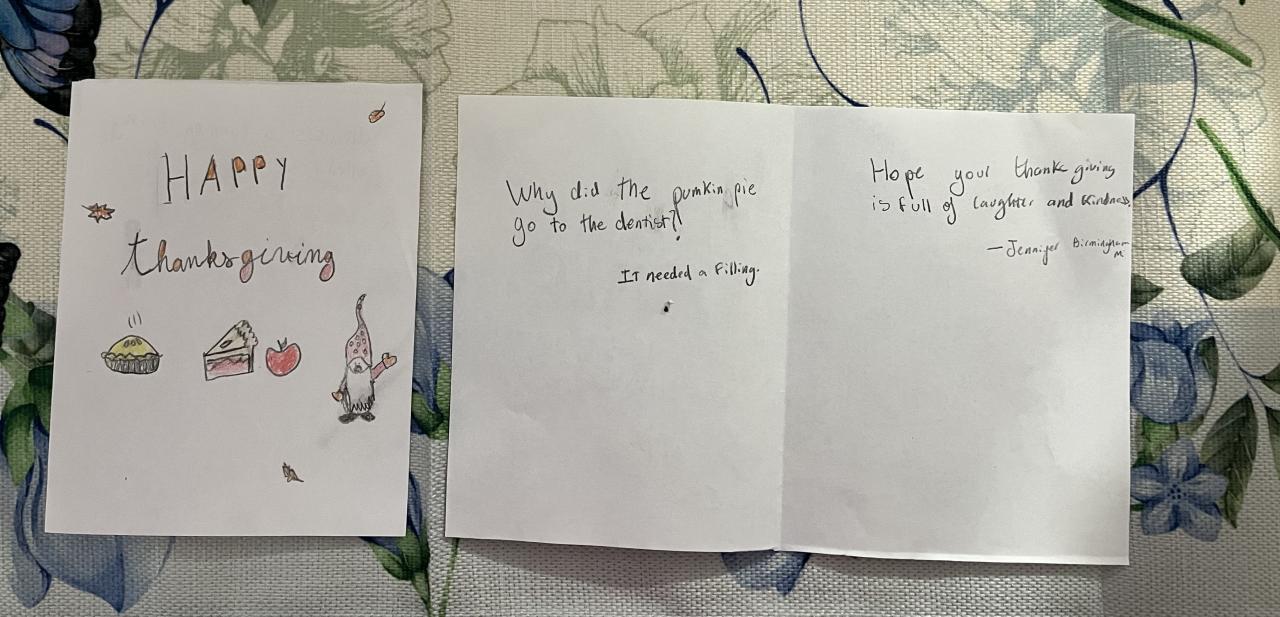 HAPPY
thanksgiving
Why did the pumkin pie
go to the dentist?!
IT needed a Filling.
Hope your thanksgiving
is full of laughter and kindness,
—Jennifer Birmingham
M